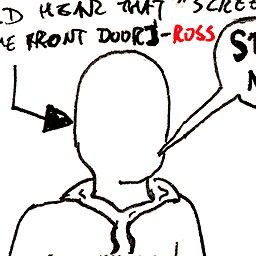 D HEAR THAT "SCREE
E FRONT DOOR]-ROSS
ST
N